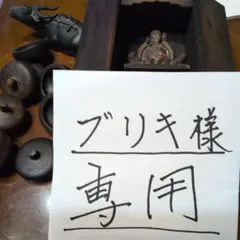 ブリキ様
専用